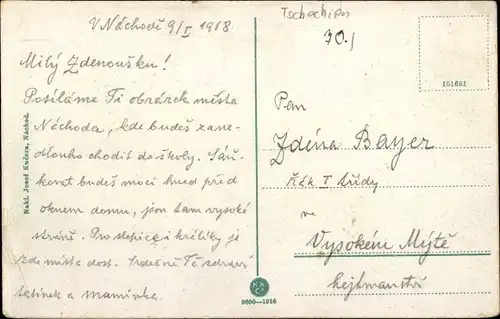 V Náchodě 9/I 1918
Milý Zdenoušku!
Posíláme Ti obrázek města
Náchoda, kde budeš zane-
dlouho choditi do školy. Sáň-
kovat budeš moci hned před
oknem domu, jsou tam vysoké
stráně. Pro slepice i králíky je
zde místa dost. Srdečně Tě zdraví
tatínek a maminka.
Tschechien
70.
151661
Pan
Zdena Bayer
žák I třídy
ve
Vysokém Mýtě
hejtmanství
Nakl. Josef Kučera, Náchod.
9600—1916